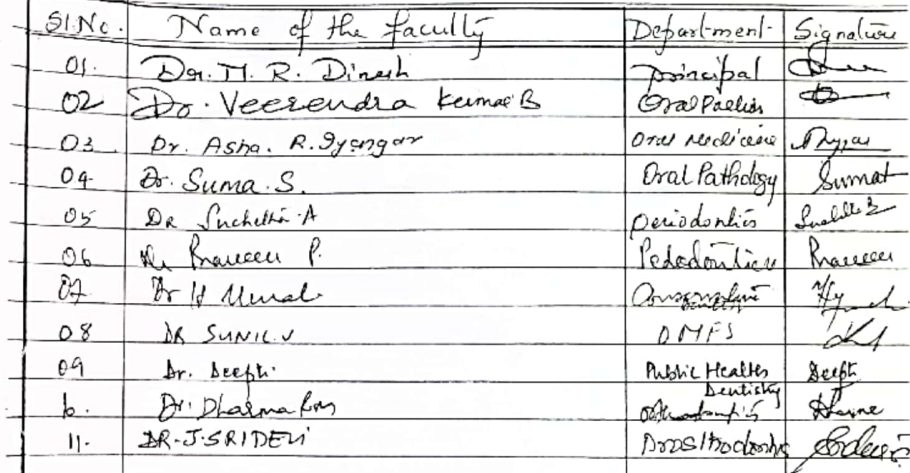 Sl.No. Name of the faculty Department Signature
01. Dr. M. R. Dinesh principal
02 Dr. Veerendra Kumar B Oral Pathos
03 Dr. Asha. R. Iyengar Oral Medicine
04 Dr. Suma. S. Oral Pathology Sumat
05 DR Suchetha. A periodontics
06 Praveen P. Pedodontics Praveen
07 Dr H Murali
08 DR SUNIL.V OMFS
09 Dr. Deepti. Public Health Deepti
Dentistry
10. Dr. Dharma Orthodontics
11. DR. J. SRIDEVI Prosthodontic